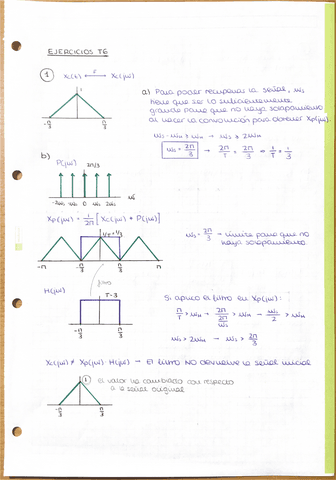 EJERCICIOS T6
1 xc(t) F Xc(jω)
a) Para poder recuperar la señal, ωs
tiene que ser lo suficientemente
grande para que no haya solapamiento
al hacer la convolución para obtener Xp(jω).
1
-π/3 π/3
ωs - ωM ≥ ωM → ωs ≥ 2ωM
ωs = 2π/3 → 2π/T = 2π/3 ⇒ 1/T = 1/3
b)
P(jω) 2π/3
-2ωs -ωs 0 ωs 2ωs
Xp(jω) = 1/2π [Xc(jω) * P(jω)]
1/T = 1/3
ωs = 2π/3 → límite para que no
haya solapamiento
-π -π/3 π/3 π
filtro
H(jω)
T = 3
-π/3 π/3
Si aplico el filtro en Xp(jω):
π/T > ωM → → ωs/2 > ωM
ωs > 2ωM → ωs > 2π/3
Xc(jω) ≠ Xp(jω) · H(jω) → El filtro NO devuelve la señal inicial
1 El valor ha cambiado con respecto
a la señal original
-π/3 π/3